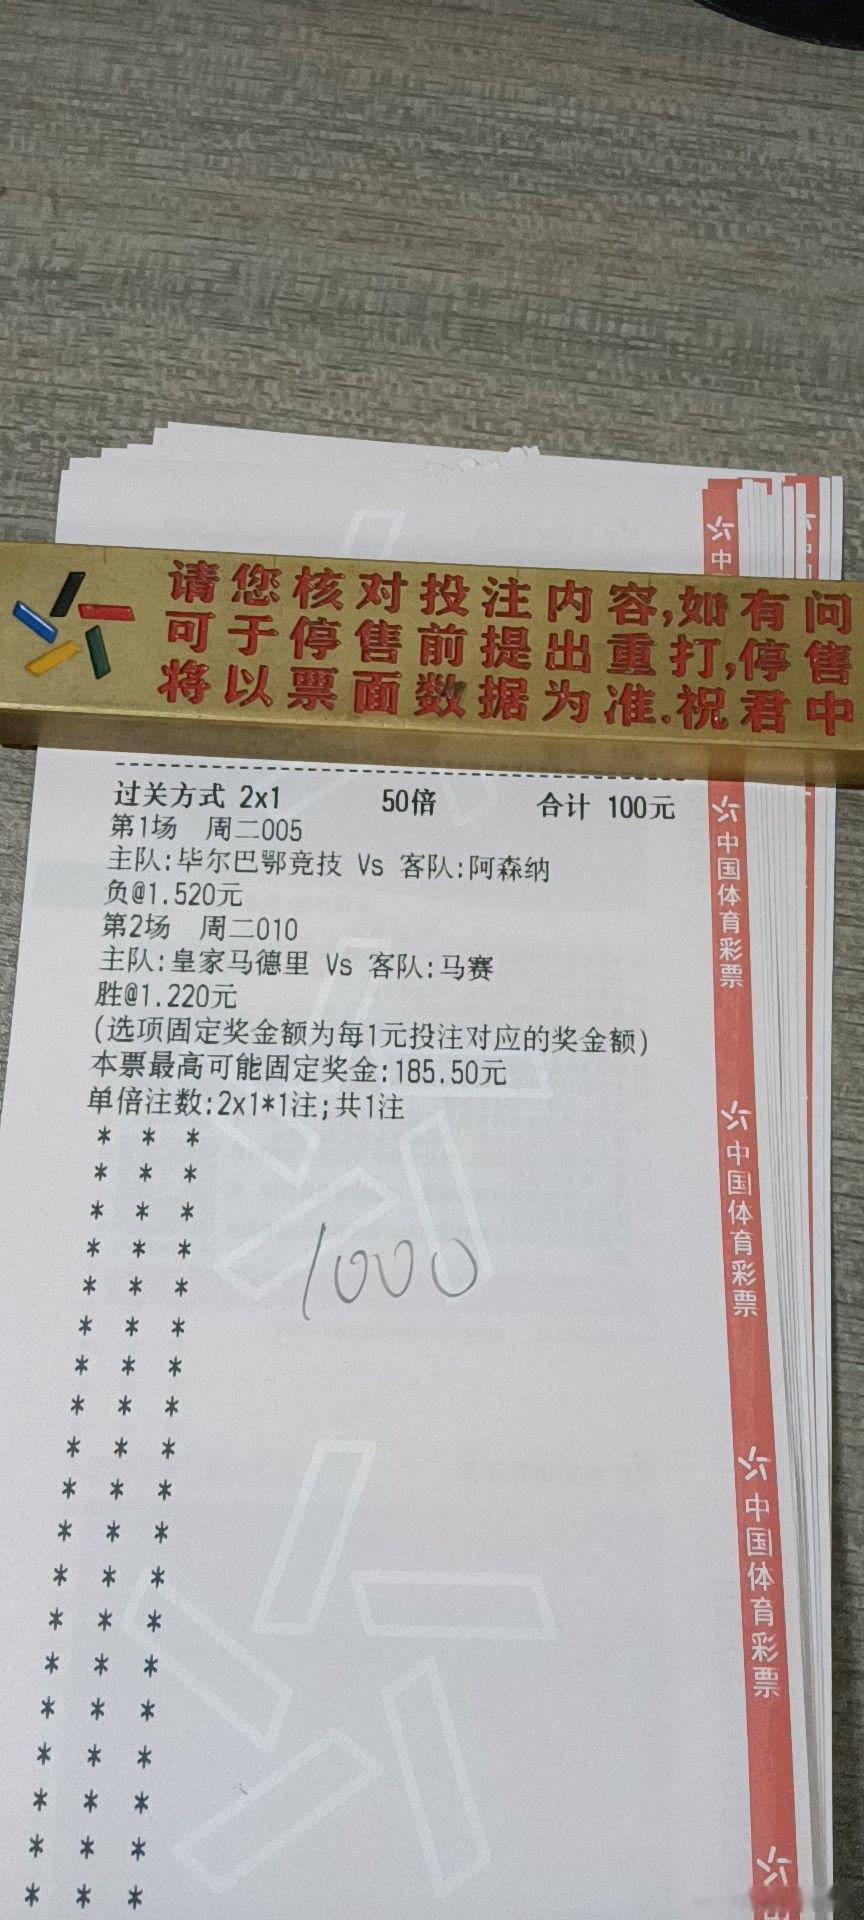 请您核对投注内容,如有问
可于停售前提出重打,停售
将以票面数据为准.祝君中
过关方式 2x1 50倍 合计 100元
第1场 周二005
主队:毕尔巴鄂竞技 Vs 客队:阿森纳
负@1.520元
第2场 周二010
主队:皇家马德里 Vs 客队:马赛
胜@1.220元
(选项固定奖金额为每1元投注对应的奖金额)
本票最高可能固定奖金:185.50元
单倍注数:2x1*1注;共1注
* * *
* * *
* * *
* * *
* * *
* * *
* * *
* * *
* * *
* * *
* * *
* * *
* * *
* * *
* * *
* * *
* * *
* * *
* * *
1000
中
中国体育彩票
中国体育彩票
中国体育彩票